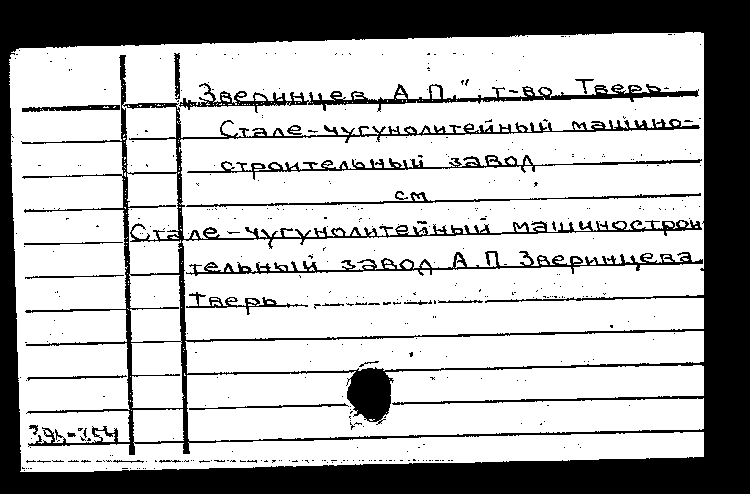 „Зверинцев, А.П.", т-во. Тверь.
Стале-чугунолитейный машино-
строительный завод
см
Стале-чугунолитейный машинострои
тельный завод А.П. Зверинцева.
Тверь